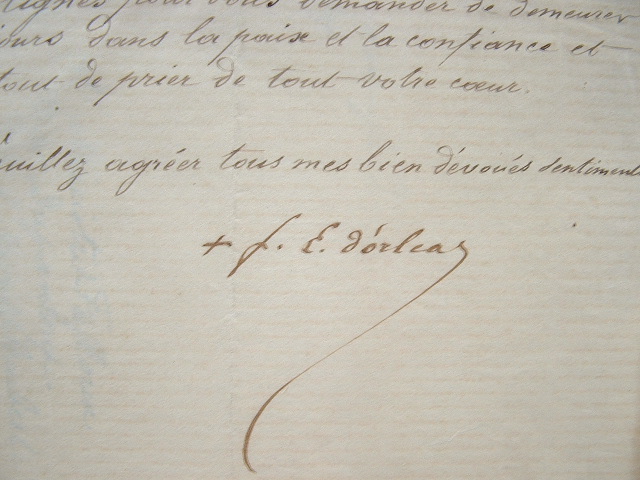 lignes pour vous demander de demeurer
jours dans la paix et la confiance et
tout de prier de tout votre cœur.
euillez agréer tous mes bien dévoués sentiments
+ f. E. d'Orléans